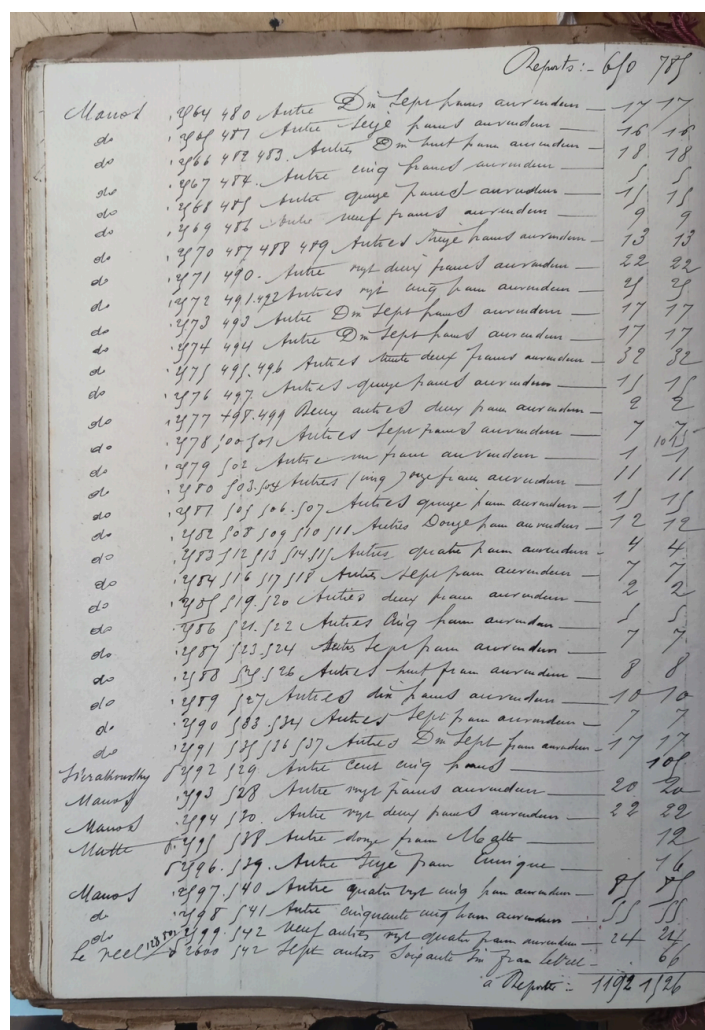 Reports :- 650 785
Manos 2564 480 Autre Dix Sept francs aurendum — 17 17
do 2565 481 Autre Seize francs aurendum — 16 16
do 2566 482 483. Autres Dix huit francs aurendum — 18 18
do 2567 484. Autre cinq francs aurendum — 5 5
do 2568 485 Autre quinze francs aurendum — 15 15
do 2569 486 Autre neuf francs aurendum — 9 9
do 2570 487 488 489 Autres Treize francs aurendum — 13 13
do 2571 490. Autre vingt deux francs aurendum — 22 22
do 2572 491.492 Autres vingt cinq francs aurendum — 25 25
do 2573 493 Autre Dix Sept francs aurendum — 17 17
do 2574 494 Autre Dix Sept francs aurendum — 17 17
do 2575 495.496 Autres trente deux francs aurendum — 32 32
do 2576 497. Autres quinze francs aurendum — 15 15
do 2577 498.499 Deux autres deux francs aurendum — 2 2
do 2578 500 501 Autres Sept francs aurendum — 7 7
do 2579 502 Autre un franc aurendum — 1 1
do 2580 503.504 Autres (cinq) onze francs aurendum — 11 11
do 2581 505 506.507 Autres quinze francs aurendum — 15 15
do 2582 508 509 510 511 Autres Douze francs aurendum — 12 12
do 2583 512 513 514 515 Autres quatre francs aurendum — 4 4
do 2584 516 517 518 Autres Sept francs aurendum — 7 7
do 2585 519.520 Autres deux francs aurendum — 2 2
do 2586 521.522 Autres Cinq francs aurendum — 5 5
do 2587 523.524 Autres Sept francs aurendum — 7 7
do 2588 525.526 Autres huit francs aurendum — 8 8
do 2589 527 Autres dix francs aurendum — 10 10
do 2590 533.534 Autres Sept francs aurendum — 7 7
do 2591 535 536 537 Autres Dix Sept francs aurendum — 17 17
Sierakowsky 2592 529 Autre cent cinq francs — 105
Manos 2593 528 Autre vingt francs aurendum — 20 20
Manos 2594 530. Autre vingt deux francs aurendum — 22 22
Matte 2595 538 Autre douze francs Matte — 12
2596. 539. Autre Seize francs — 16
Manos 2597. 540 Autre quatre vingt cinq francs aurendum — 85 85
do 2598 541 Autre cinquante cinq francs aurendum — 55 55
do 2599. 542 Neuf autres vingt quatre francs aurendum — 24 24
Le reel 2600 542 Sept autres Soixante Six francs — 66
à Reporter :- 1192 1526